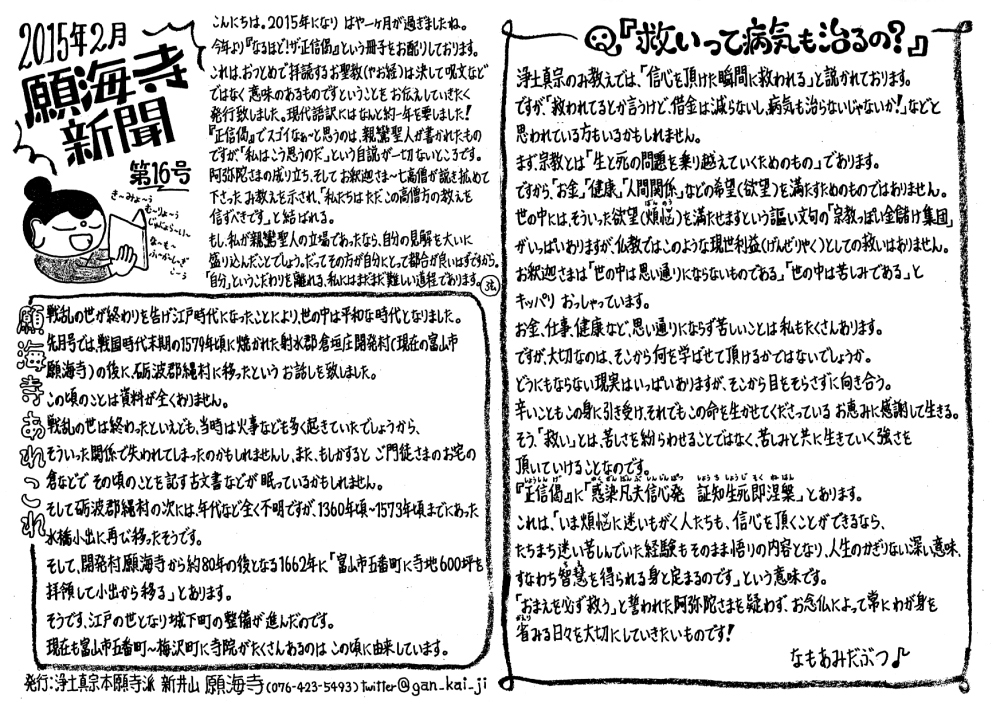 2015年2月
願海寺
新聞
第16号
きーみょーう
むーりょーう
じゅーにょーらーいー
なーもー
ふーかーしーぎ
こーう
こんにちは。2015年になり はや一ヶ月が過ぎましたね。
今年より『なるほど!ザ・正信偈』という冊子をお配りしております。
これは、おつとめで拝読するお聖教(やお経)は決して呪文など
ではなく意味のあるものですということをお伝えしていきたく
発行致しました。現代語訳にはなんと約一年を要しました!
『正信偈』でスゴイなぁ~と思うのは、親鸞聖人が書かれたもの
ですが「私はこう思うのだ」という自説が一切ないところです。
阿弥陀さまの成り立ち、そしてお釈迦さま~七高僧が説き拡めて
下さったみ教えを示され、「私たちはただこの高僧方の教えを
信ずべきです」と結ばれる。
もし、私が親鸞聖人の立場であったなら、自分の見解を大いに
盛り込んだことでしょう。だってその方が自分にとって都合が良いはずですから。
「自分」というこだわりを離れる、私にはまだまだ難しい道程であります。
願海寺あれこれ
戦乱の世が終わりを告げ江戸時代になったことにより、世の中は平和な時代となりました。
先月号では、戦国時代末期の1579年頃に焼かれた射水郡倉垣庄開発村(現在の富山市
願海寺)の後に、砺波郡縄村に移ったというお話しを致しました。
この頃のことは資料が全くありません。
戦乱の世は終わったといえども、当時は火事なども多く起きていたでしょうから、
そういった関係で失われてしまったのかもしれませんし、また、もしかすると ご門徒さまのお宅の
倉などで その頃のことを記す古文書などが眠っているかもしれません。
そして砺波郡縄村の次には、年代など全く不明ですが、1360年頃~1573年頃まであった
水橋小出に再び移ったそうです。
そして、開発村願海寺から約80年の後となる1662年に「富山市五番町に寺地600坪を
拝領して小出から移る」とあります。
そうです、江戸の世となり城下町の整備が進んだのです。
現在も富山市五番町~梅沢町に寺院がたくさんあるのは この頃に由来しています。
発行:浄土真宗本願寺派 新井山 願海寺(076-423-5493)twitter@gan_kai_ji
『救いって病気も治るの?』
浄土真宗のみ教えでは、「信心を頂けた瞬間に救われる」と説かれております。
ですが、「救われてるとか言うけど、借金は減らないし、病気も治らないじゃないか!」などと
思われている方もいるかもしれません。
まず、宗教とは「生と死の問題を乗り越えていくためのもの」であります。
ですから、「お金」「健康」「人間関係」などの希望(欲望)を満たすためのものではありません。
世の中には、そういった欲望(煩悩)を満たせますという謳い文句の「宗教っぽい金儲け集団」
がいっぱいありますが、仏教ではこのような現世利益(げんぜりやく)としての救いはありません。
お釈迦さまは「世の中は思い通りにならないものである」「世の中は苦しみである」と
キッパリ おっしゃっています。
お金、仕事、健康など、思い通りにならず苦しいことは私もたくさんあります。
ですが、大切なのは、そこから何を学ばせて頂けるかではないでしょうか。
どうにもならない現実はいっぱいありますが、そこから目をそらさずに向き合う。
辛いこともこの身に引き受け、それでもこの命を生かせてくださっている お恵みに感謝して生きる。
そう、「救い」とは、苦しさを紛らわせることではなく、苦しみと共に生きていく強さを
頂いていけることなのです。
『正信偈』に「惑染凡夫信心発 証知生死即涅槃」とあります。
これは、「いま煩悩に迷いもがく人たちも、信心を頂くことができるなら、
たちまち迷い苦しんでいた経験もそのまま悟りの内容となり、人生のかぎりない深い意味、
すなわち智慧を得られる身と定まるのです」という意味です。
「おまえを必ず救う」と誓われた阿弥陀さまを疑わず、お念仏によって常にわが身を
省みる日々を大切にしていきたいものです!
なもあみだぶつ♪